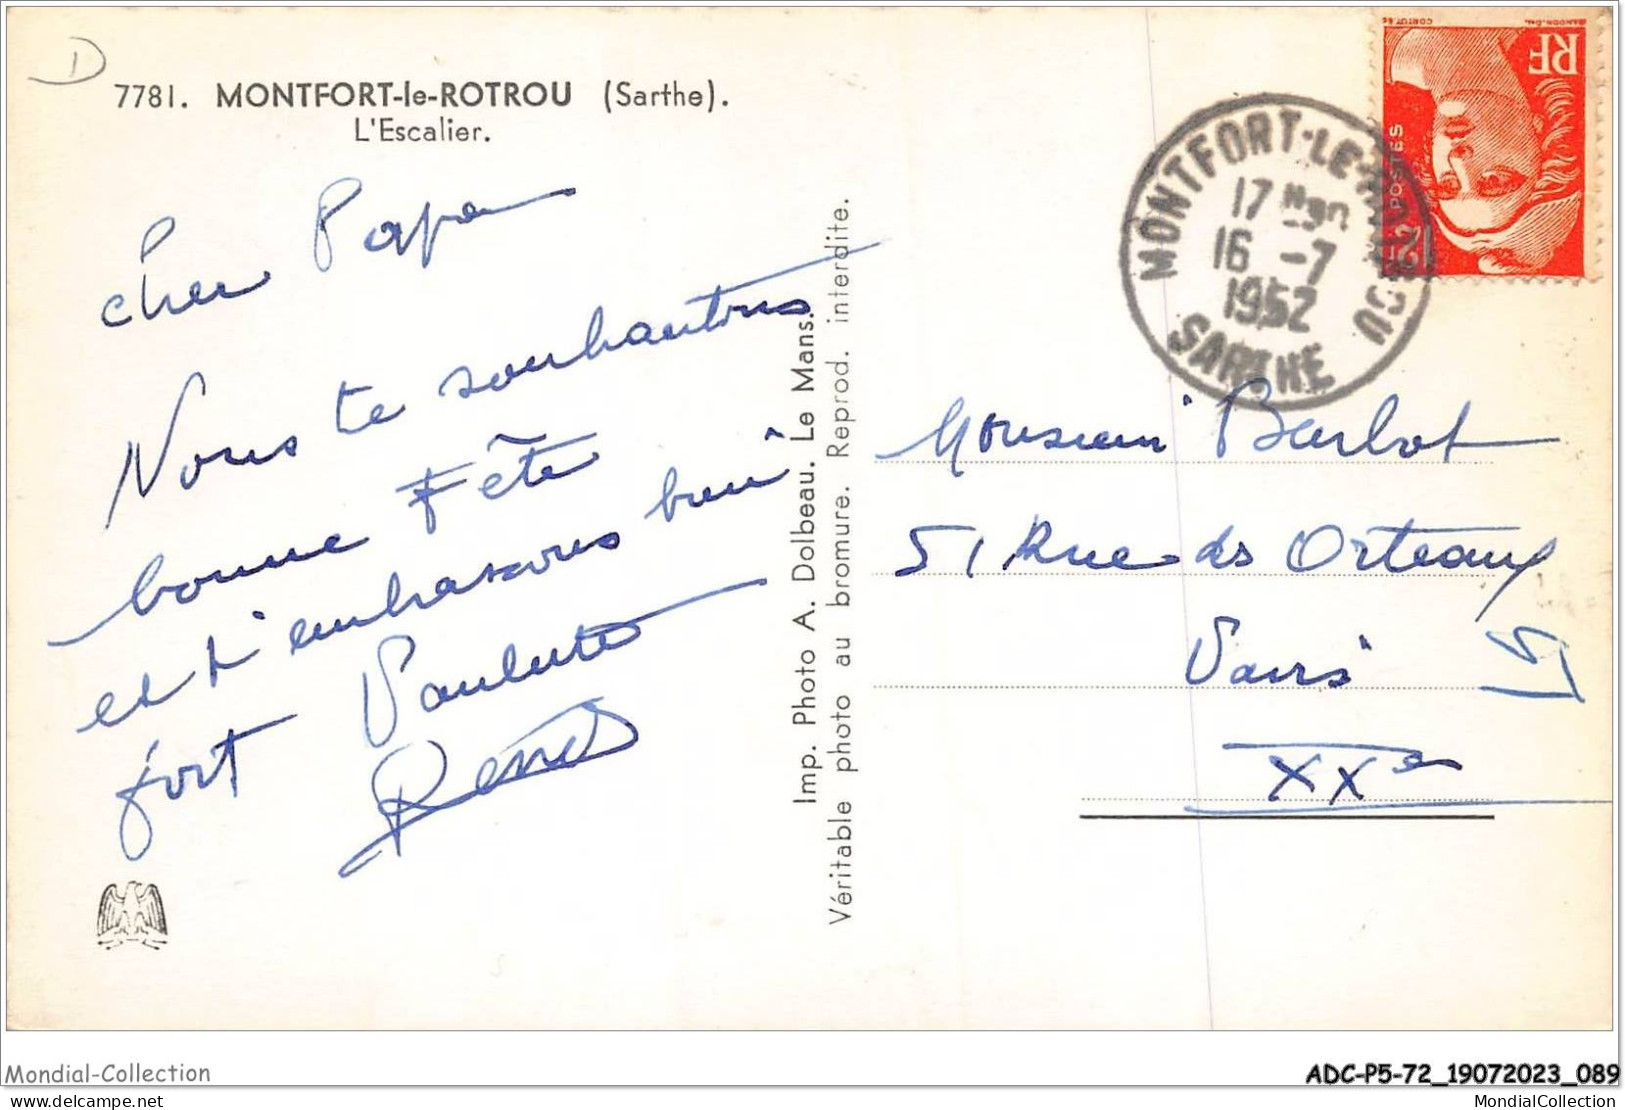 7781. MONTFORT-le-ROTROU (Sarthe).
L'Escalier.
Cher Papa
Nous te souhaitons
bonne Fête
et t'embrassons bien
fort Paulette
René
Imp. Photo A. Dolbeau. Le Mans.
Véritable photo au bromure. Reprod. interdite.
RF
POSTES
12F
MONTFORT-LE-ROTROU
17H30
16 -7
1952
SARTHE
Monsieur Barbot
51 Rue des Orteaux
Paris
XXe
Mondial-Collection
ADC-P5-72_19072023_089
delcampe.net
MondialCollection